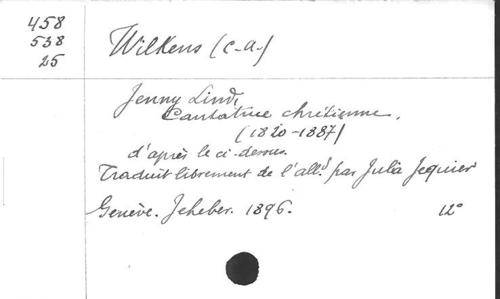 458
538
25
Wilkens (C-A-)
Jenny Lind,
Cantatrice chrétienne.
(1820-1887)
d'après le ci-dessus.
Traduit librement de l'all.d par Julia Jequier
Genève. Jeheber. 1896. 12°